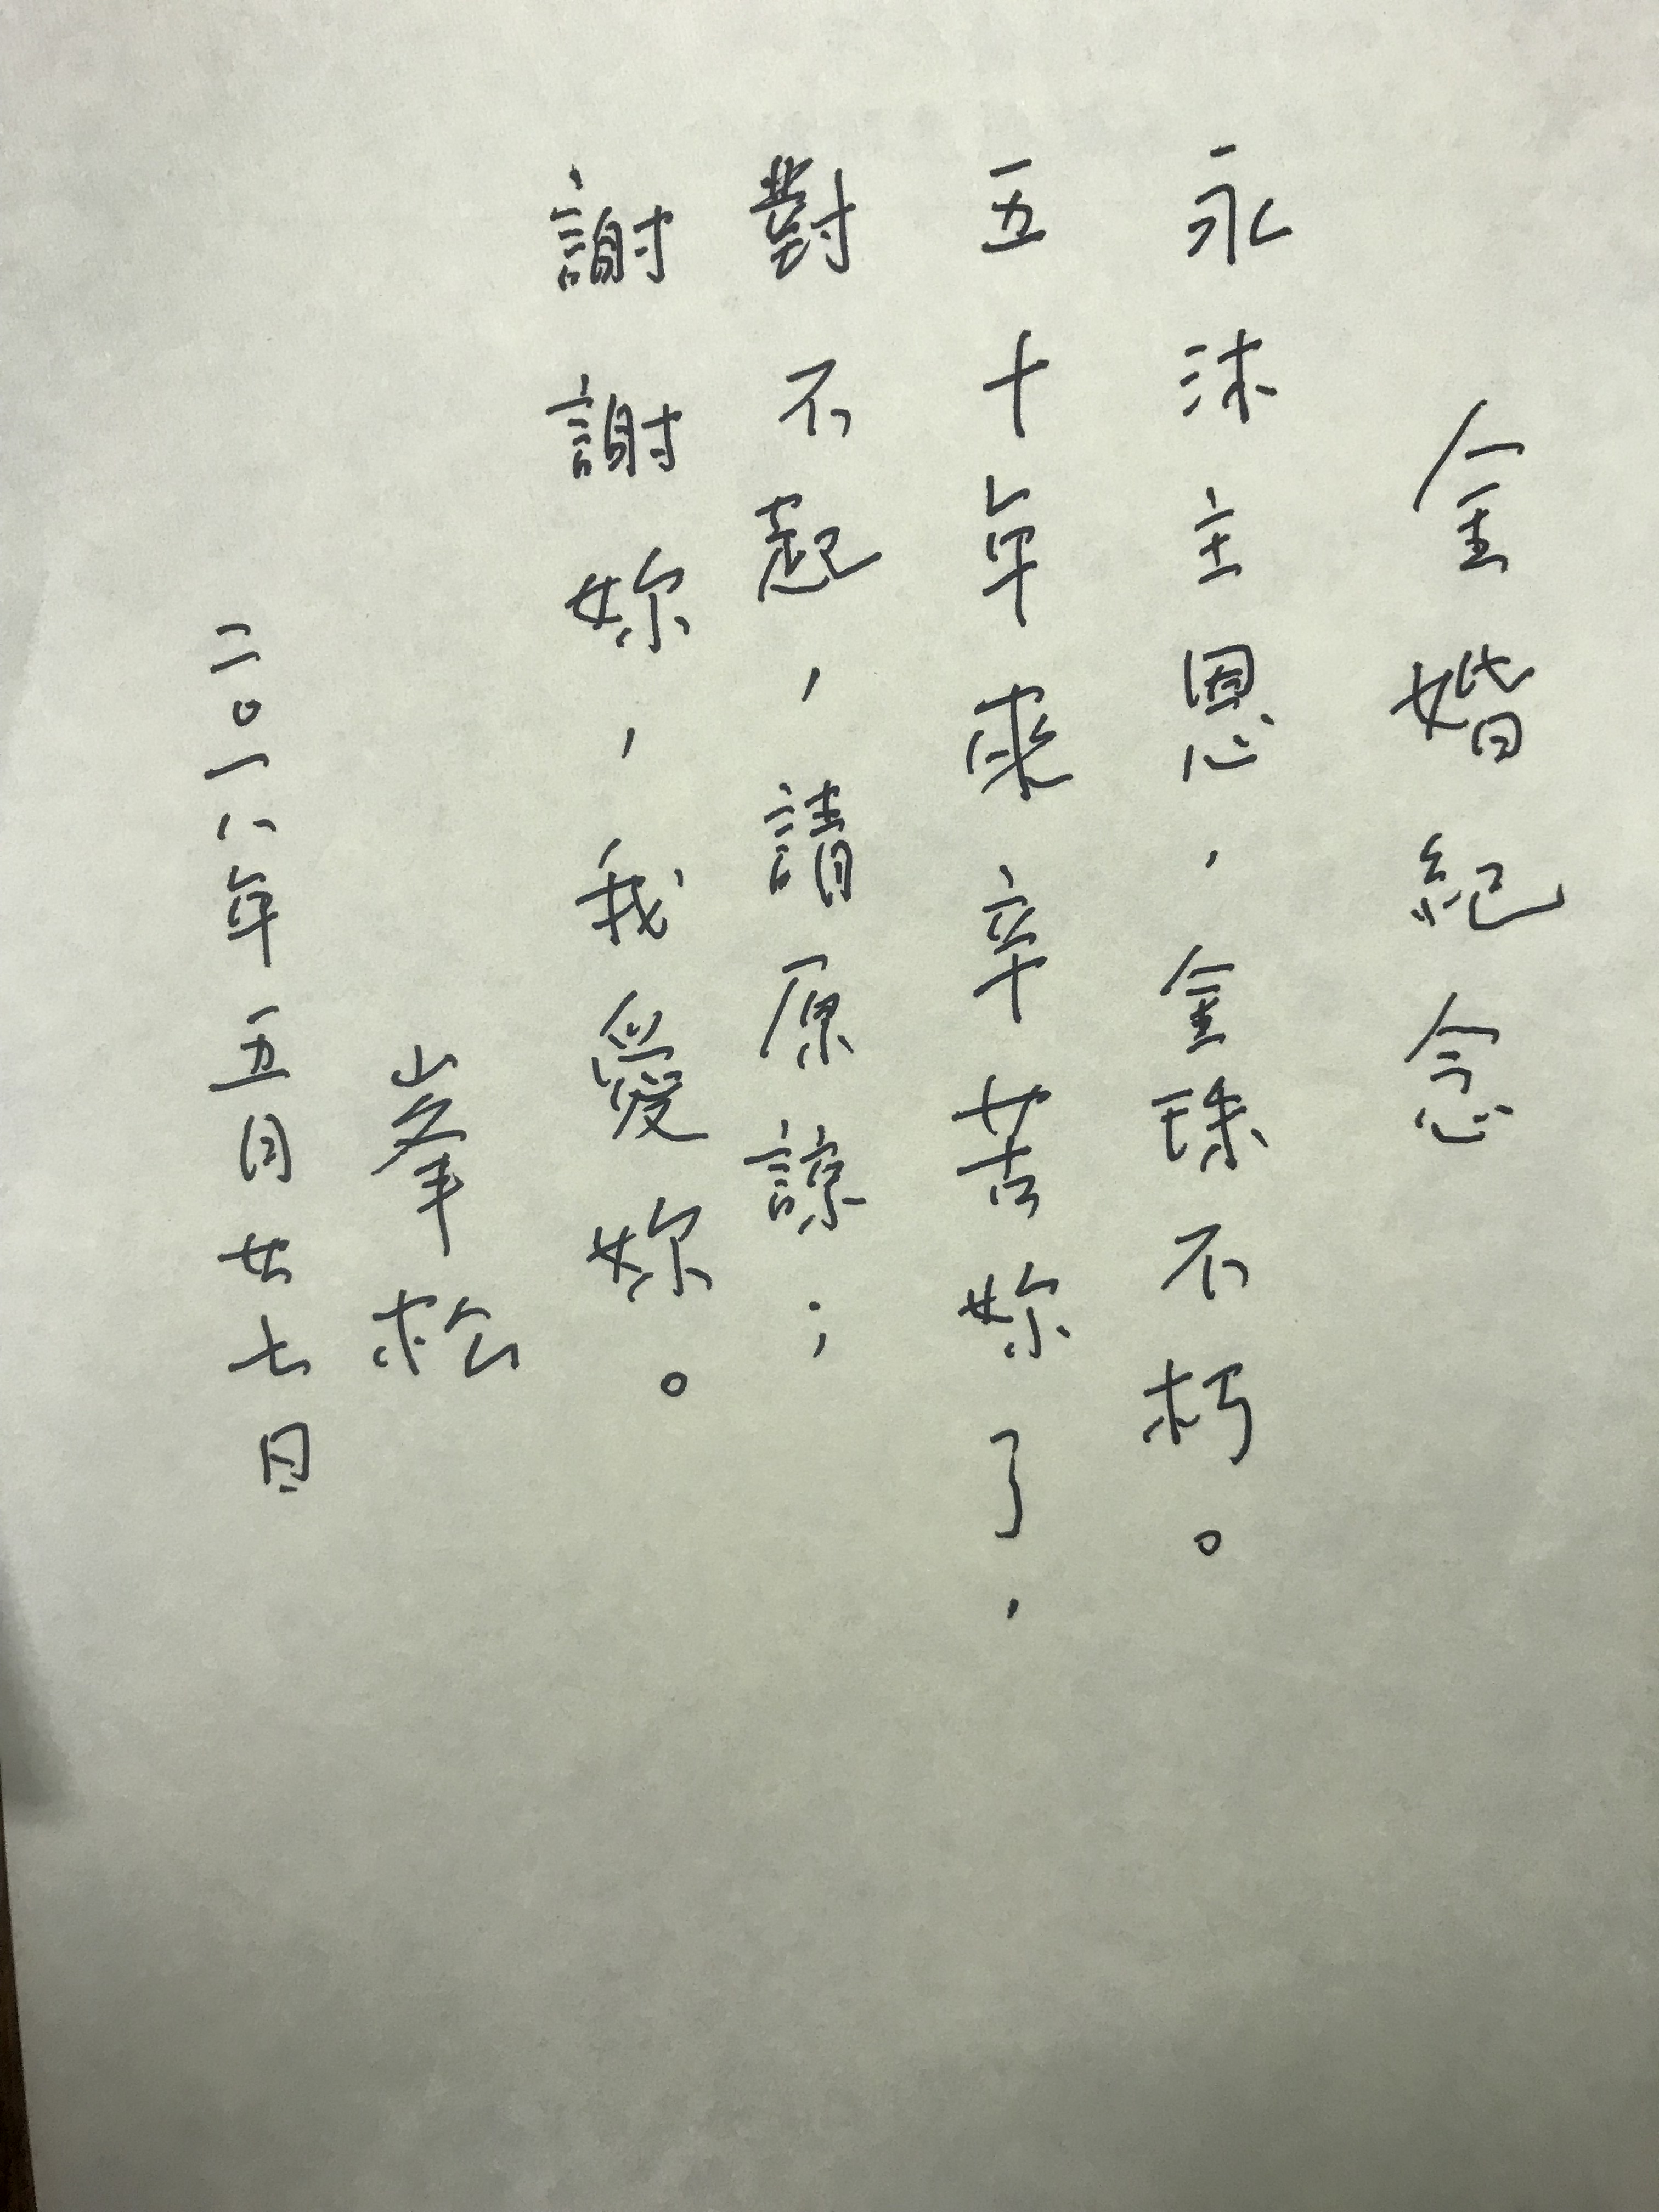 金婚紀念
永沐主恩，金珠不朽。
五十年來辛苦妳了，
對不起，請原諒；
謝謝妳，我愛妳。
峯松
二〇一八年五月廿七日